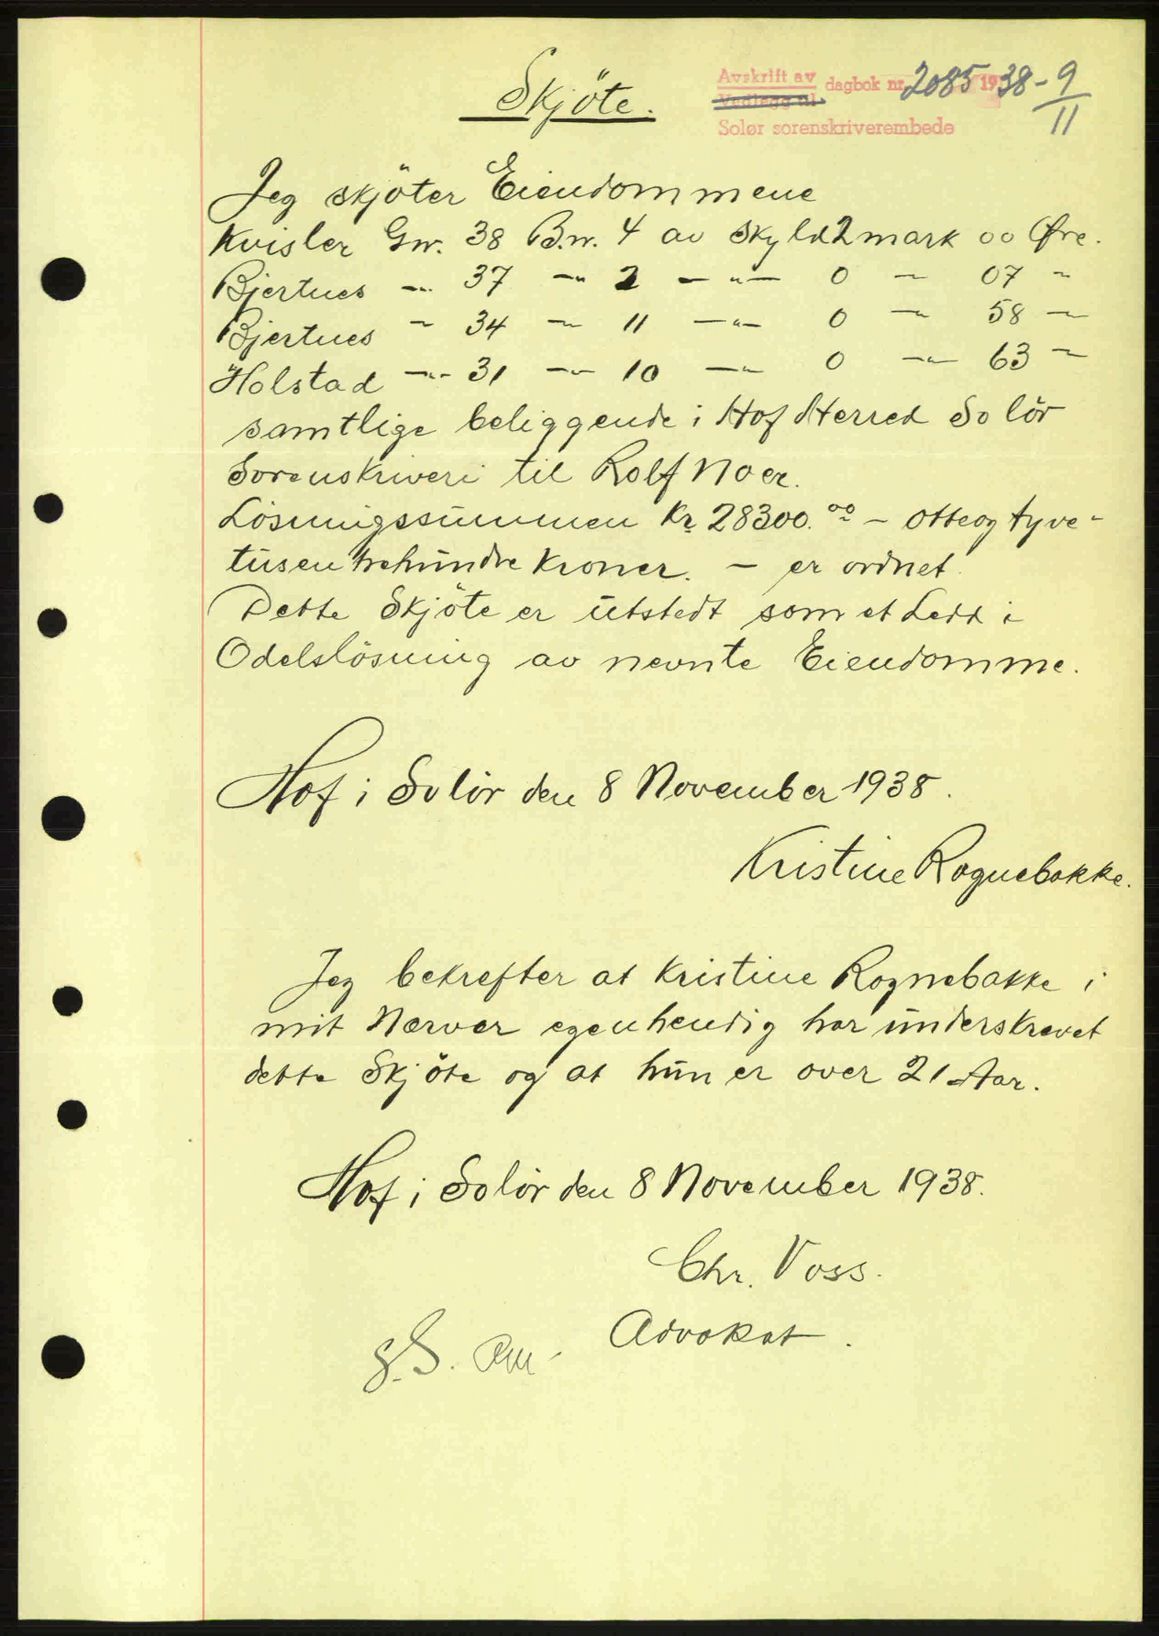 Skjöte.
Avskrift av
Vedlegg til
dagbok nr. 2085 1938 - 9/11
Solør sorenskriverembede
Jeg skjöter Eiendommene
Kvisler Gnr. 38 B.nr. 4 av Skyld 2 mark 00 Øre.
Bjertnes -"- 37 -"- 2 -"- 0 - 07 -"-
Bjertnes - 34 -"- 11 -"- 0 -"- 58 -"-
Holstad -"- 31 -"- 10 -"- 0 -"- 63 -"-
samtlige beliggende i Hof Herred Solör
Sorenskriveri til Rolf Noer.
Lösningssummen Kr. 28300.00 - otteogtyve-
tusentrehundre Kroner. - er ordnet.
Dette Skjöte er utstedt som et Ledd i
Odelslösning av nevnte Eiendomme.
Hof i Solör den 8 November 1938.
Kristine Rognebakke.
Jeg bekrefter at Kristine Rognebakke i
mit Nærvær egenhendig har underskrevet
dette Skjöte og at hun er over 21 Aar.
Hof i Solör den 8 November 1938.
Chr. Voss.
Advokat.